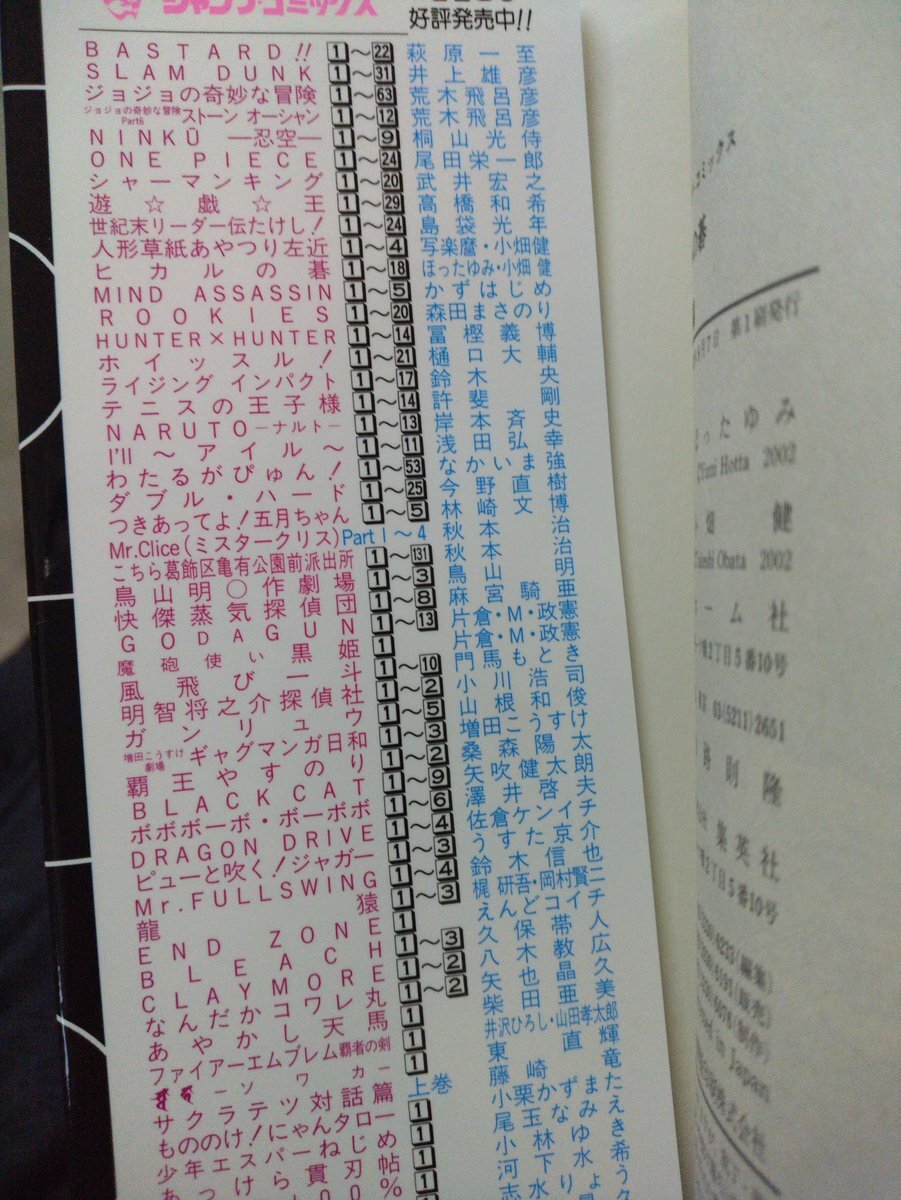 ジャンプ・コミックス
好評発売中!!
BASTARD!! 1〜22 萩原一至
SLAM DUNK 1〜31 井上雄彦
ジョジョの奇妙な冒険 1〜63 荒木飛呂彦
ジョジョの奇妙な冒険Part6 ストーン オーシャン 1〜12 荒木飛呂彦
NINKŪ ―忍空― 1〜9 桐山光侍
ONE PIECE 1〜24 尾田栄一郎
シャーマンキング 1〜20 武井宏之
遊☆戯☆王 1〜29 高橋和希
世紀末リーダー伝たけし! 1〜24 島袋光年
人形草紙あやつり左近 1〜4 写楽麿・小畑健
ヒカルの碁 1〜18 ほったゆみ・小畑健
MIND ASSASSIN 1〜5 かずはじめ
ROOKIES 1〜20 森田まさのり
HUNTER×HUNTER 1〜14 冨樫義博
ホイッスル! 1〜21 樋口大輔
ライジング インパクト 1〜17 鈴木央
テニスの王子様 1〜14 許斐剛
NARUTO―ナルト― 1〜13 岸本斉史
I'll〜アイル〜 1〜11 浅田弘幸
わたるがぴゅん! 1〜53 なかいま強
ダブル・ハード 1〜25 今野直樹
つきあってよ!五月ちゃん 1〜5 林崎文博
Mr.Clice(ミスタークリス) Part1〜4 秋本治
こちら葛飾区亀有公園前派出所 1〜131 秋本治
鳥山明○作劇場 1〜3 鳥山明
快傑蒸気探偵団 1〜8 麻宮騎亜
GODAGUN 1〜13 片倉・M・政憲
魔砲使い黒姫 1 片倉・M・政憲
風飛び一斗 1〜10 門馬もとき
明智将之介探偵社 1〜2 小川浩司
ガンリュウ 1〜5 山根和俊
増田こうすけ劇場 ギャグマンガ日和 1〜3 増田こうすけ
覇王やすのり 1〜2 桑森陽太
BLACK CAT 1〜9 矢吹健太朗
ボボボーボ・ボーボボ 1〜6 澤井啓夫
DRAGON DRIVE 1〜4 佐倉ケンイチ
ピューと吹く!ジャガー 1〜3 うすた京介
Mr.FULLSWING 1〜4 鈴木信也
龍猿 1〜3 梶研吾・岡村賢二
END ZONE 1 えんどコイチ
BLEACH 1〜3 久保帯人
CLAYMORE 1〜2 八木教広
なんだかコワレ丸 1〜2 矢也晶久
あやかし天馬 1 柴田亜美
ファイアーエムブレム覇者の剣 1 井沢ひろし・山田孝太郎
ーソワカー 1 東直輝
サクラテツ対話篇 上巻 藤崎竜
もののけ!にゃんタロー 1 小栗かずまた
少年エスパーねじめ 1 尾玉なみえ
貫刃帖 1 小林ゆき
00% 1 河下水希
コミックス
月7日 第1刷発行
ったゆみ
©Yumi Hotta 2002
畑 健
Takeshi Obata 2002
ホーム社
2丁目5番10号
03(5211)2651
則 隆
集英社
2丁目5番10号
(編集)
(販売)
(制作)
in Japan
株式会社